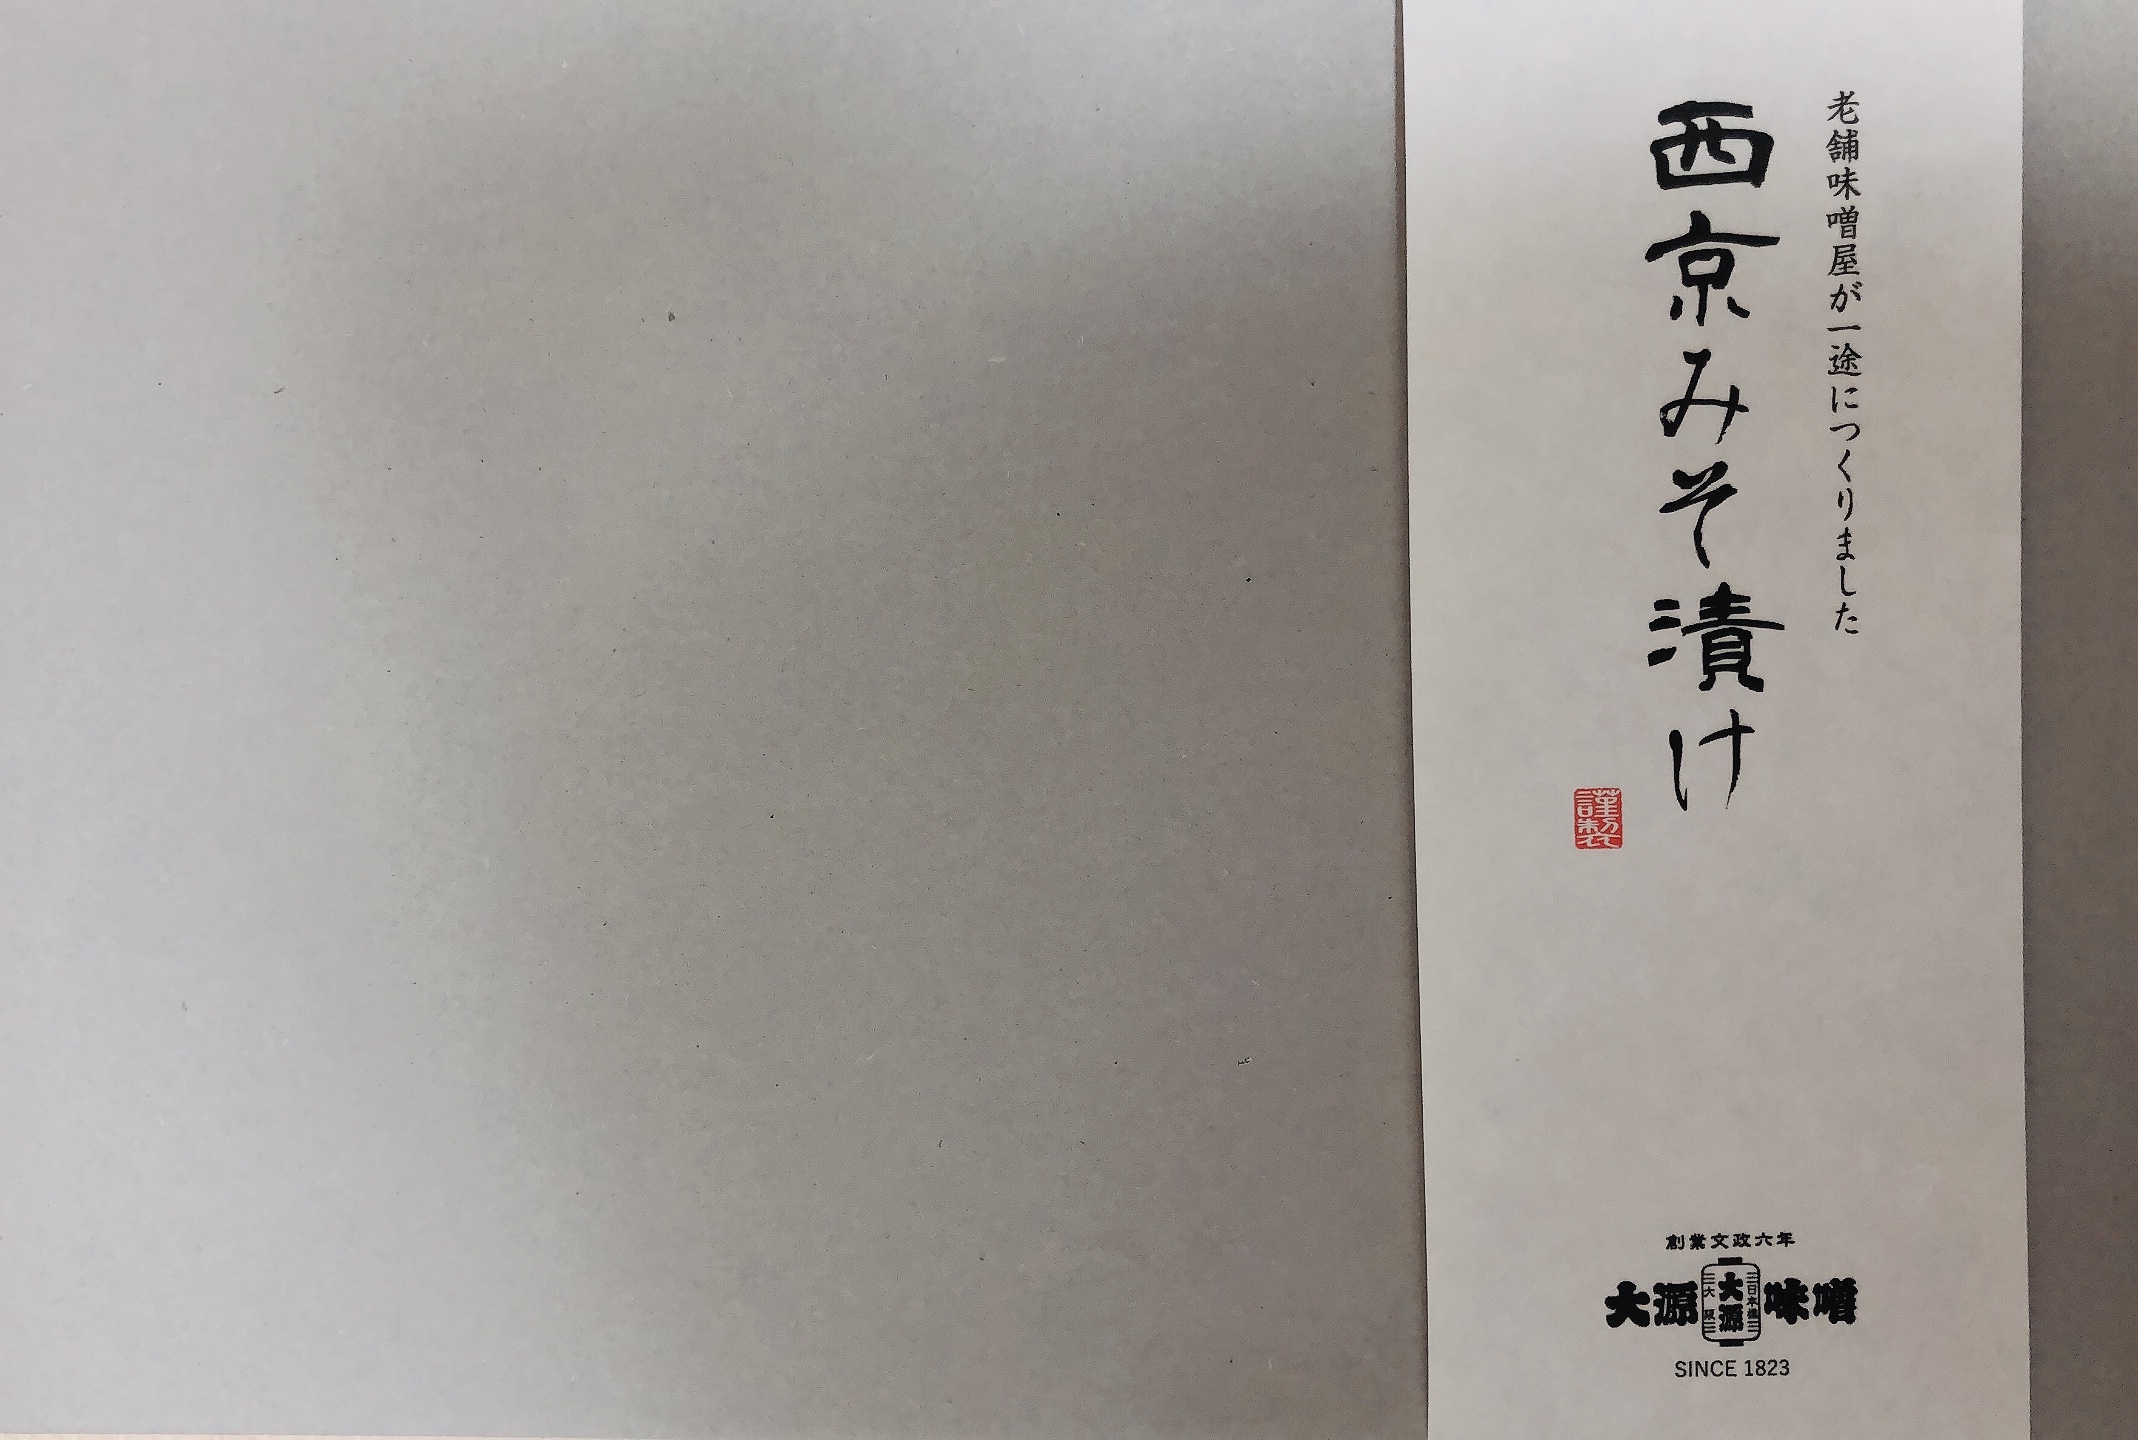 老舗味噌屋が一途につくりました
西京みそ漬け
謹製
創業文政六年
大源味噌
大源
日本橋
大阪
SINCE 1823